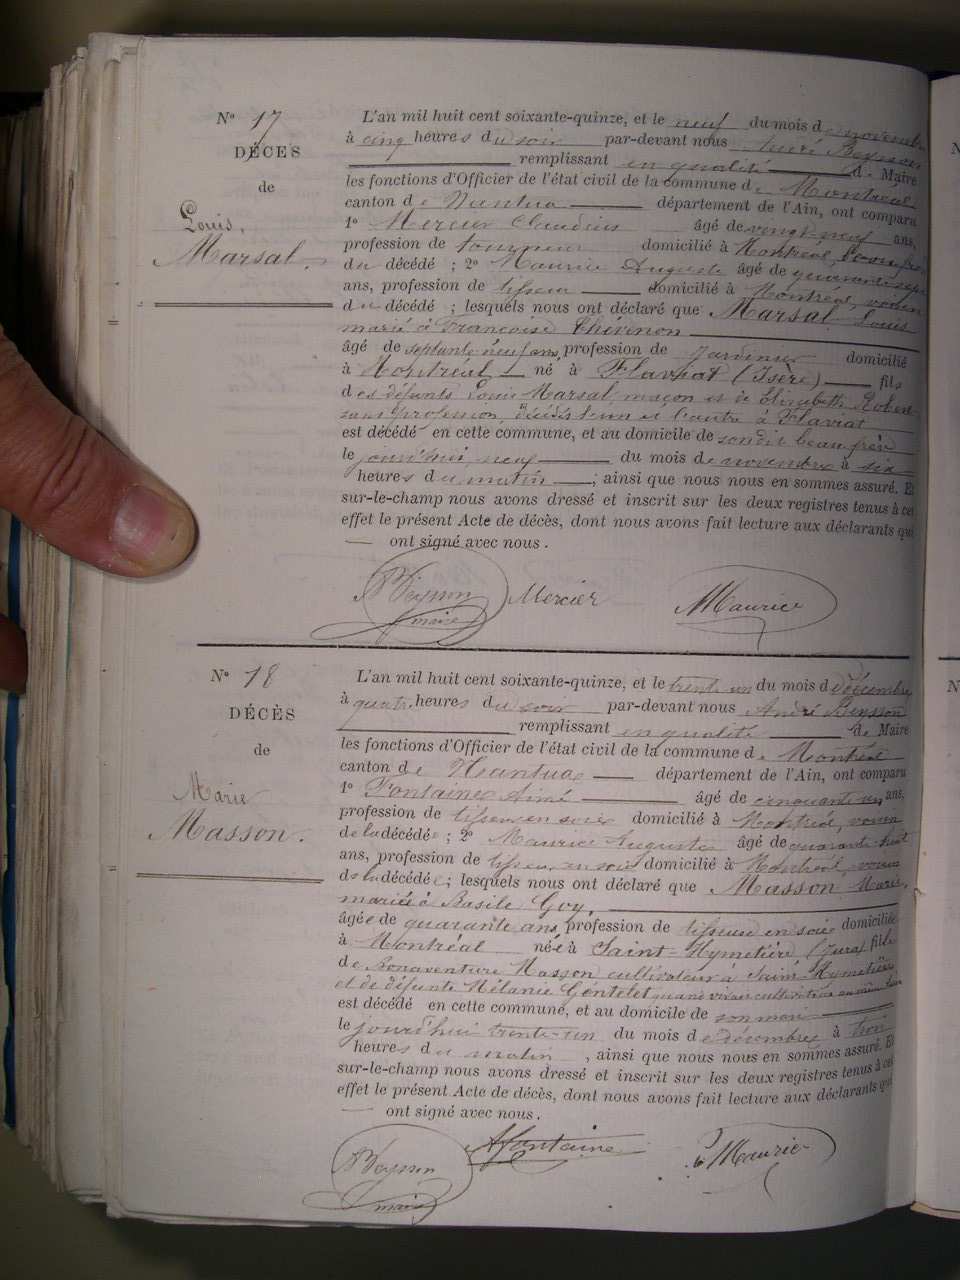 N° 17
DÉCES
de
Louis,
Marsal.
L'an mil huit cent soixante-quinze, et le neuf du mois de novembre
à cinq heures du soir par-devant nous André Beysson
remplissant en qualité de Maire
les fonctions d'Officier de l'état civil de la commune de Montréal
canton de Nantua département de l'Ain, ont comparu
1° Mercier Claudius âgé de vingt-neuf ans,
profession de tourneur domicilié à Montréal,
du décédé ; 2° Maurice Auguste âgé de quarante-sept
ans, profession de tisseur domicilié à Montréal, voisin
du décédé ; lesquels nous ont déclaré que Marsal Louis
marié à Françoise Thévenon
âgé de septante neuf ans, profession de jardinier domicilié
à Montréal né à Flavriat (Isère) fils
des défunts Louis Marsal, maçon et de Elisabeth Robert
sans profession, décédés l'un et l'autre à Flavriat
est décédé en cette commune, et au domicile de son dit beau frère
le jourd'hui neuf du mois de novembre à six
heures du matin ; ainsi que nous nous en sommes assuré. Et
sur-le-champ nous avons dressé et inscrit sur les deux registres tenus à cet
effet le présent Acte de décès, dont nous avons fait lecture aux déclarants qui
— ont signé avec nous.
Beysson Mercier Maurice
maire
N° 18
DÉCÈS
de
Marie
Masson.
L'an mil huit cent soixante-quinze, et le trente un du mois de décembre
à quatre heures du soir par-devant nous André Beysson
remplissant en qualité de Maire
les fonctions d'Officier de l'état civil de la commune de Montréal
canton de Nantua département de l'Ain, ont comparu
1° Fontaine Aimé âgé de cinquante un ans,
profession de tisseur en soie domicilié à Montréal, voisin
de la décédée ; 2° Maurice Auguste âgé de quarante-huit
ans, profession de tisseur en soie domicilié à Montréal, voisin
de la décédée ; lesquels nous ont déclaré que Masson Marie,
mariée à Basile Goy,
âgée de quarante ans, profession de tisseuse en soie domiciliée
à Montréal née à Saint-Hymetière (Jura) fille
de Bonaventure Masson cultivateur à Saint-Hymetière
et de défunte Mélanie Gentelet quand vivait cultivatrice au même lieu
est décédé en cette commune, et au domicile de son mari
le jourd'hui trente-un du mois de décembre à trois
heures du matin , ainsi que nous nous en sommes assuré. Et
sur-le-champ nous avons dressé et inscrit sur les deux registres tenus à cet
effet le présent Acte de décès, dont nous avons fait lecture aux déclarants qui
— ont signé avec nous.
Beysson AFontaine Maurice
maire